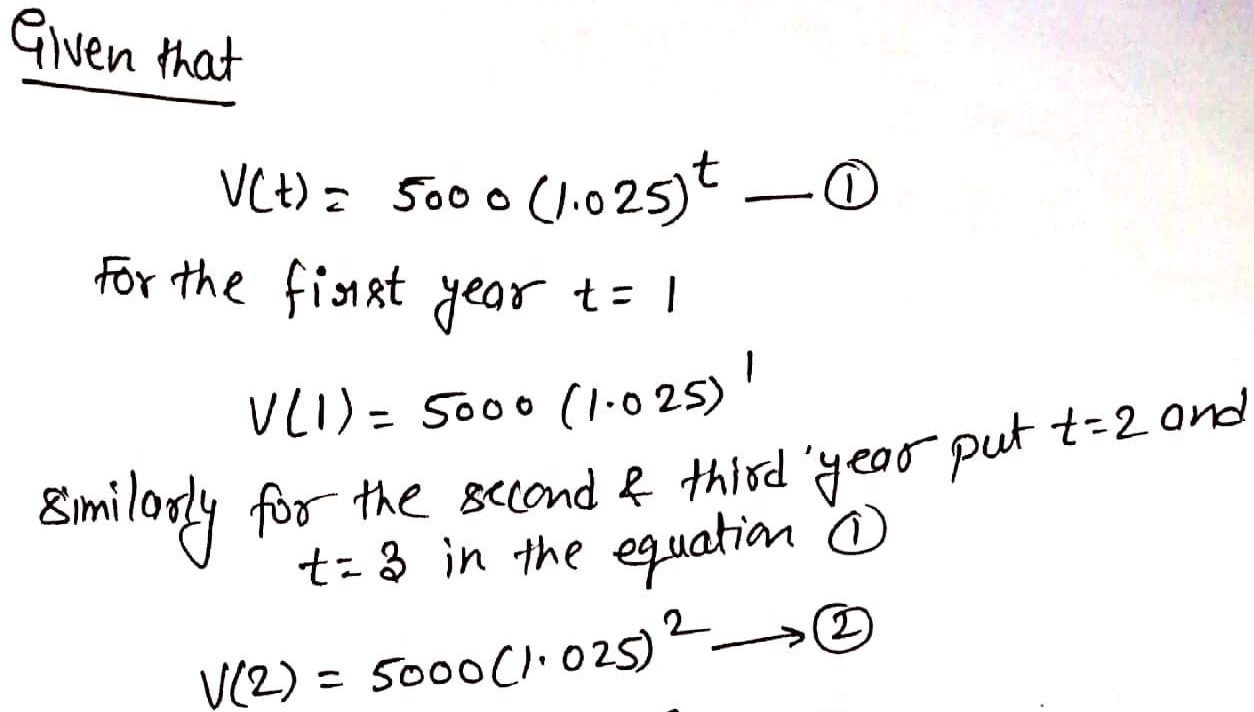 Given that
V(t) = 5000 (1.025)^t — ①
For the first year t = 1
V(1) = 5000 (1.025)^1
Similarly for the second & third year put t=2 and
t=3 in the equation ①
V(2) = 5000(1.025)^2 → ②